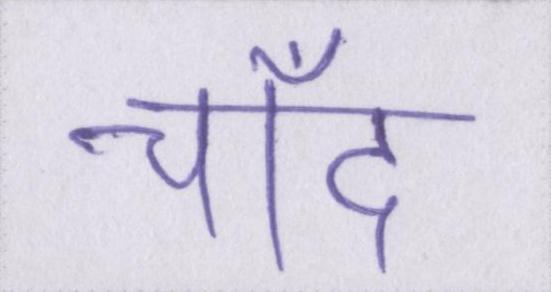 चाँद